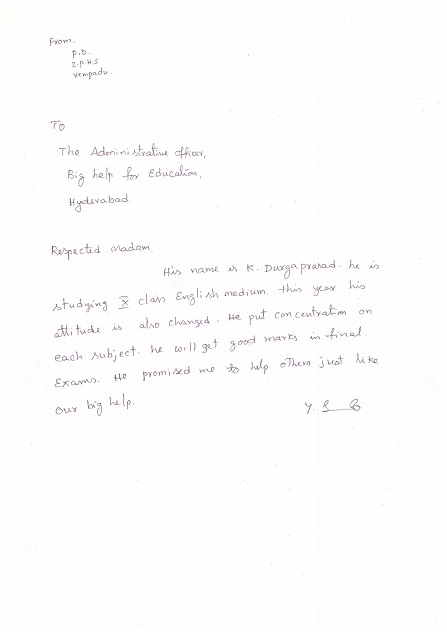 From.
P.D.
Z.P.H.S
Vempadu.
To
The Administrative officer,
Big help for Education,
Hyderabad.
Respected madam.
His name is K. Durgaprasad. he is
studying X class English medium. this year his
attitude is also changed. He put concentration on
each subject. he will get good marks in final
Exams. He promised me to help others just like
our big help.